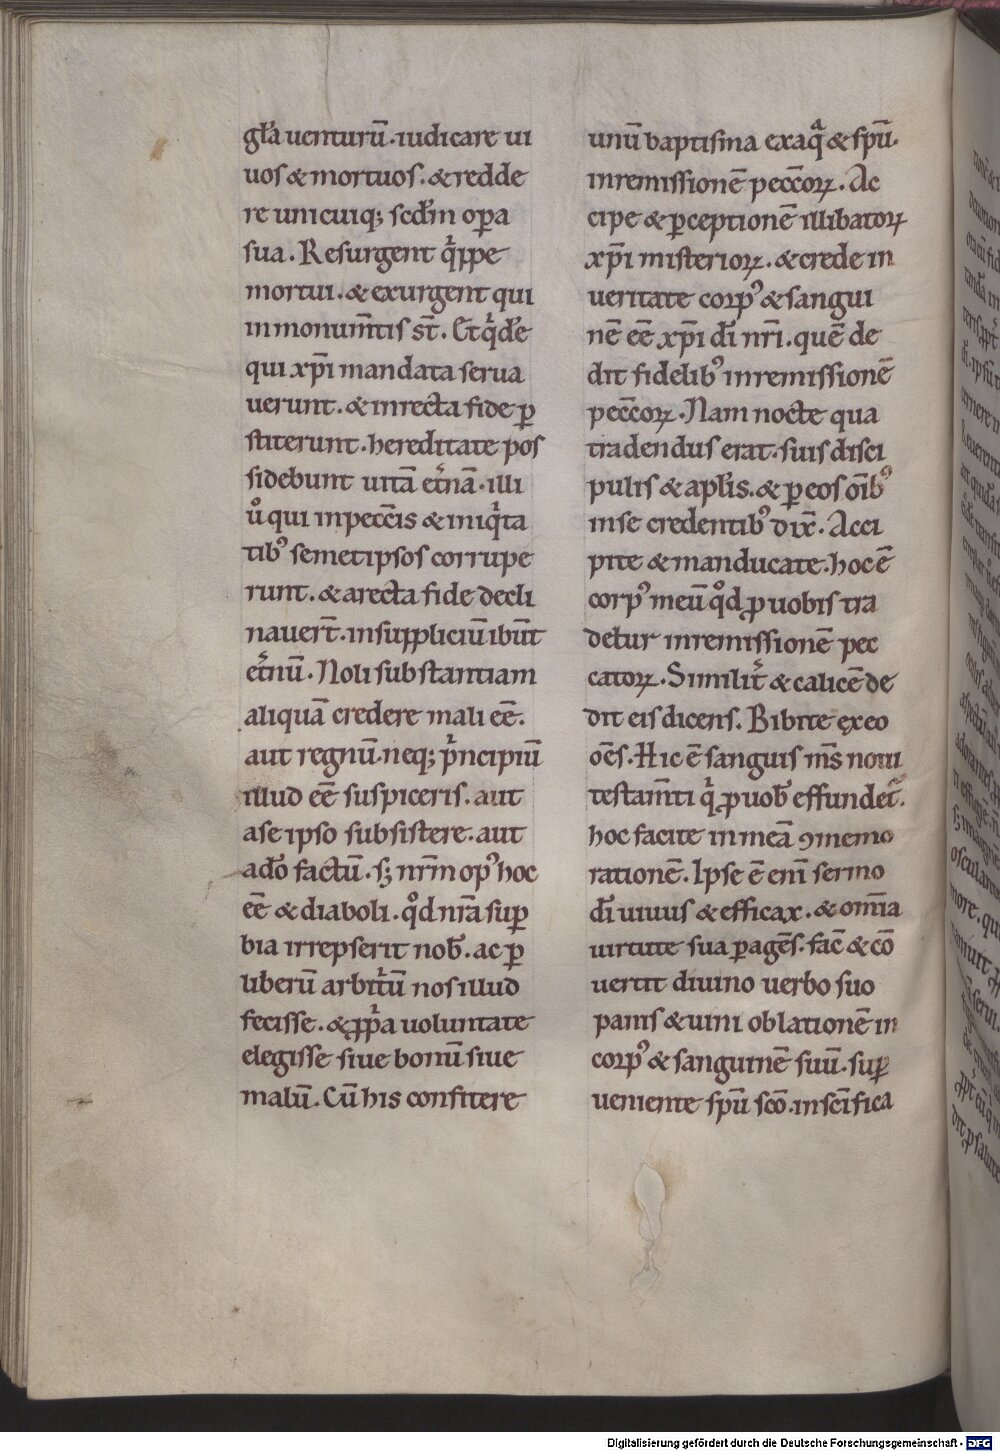 gl̄a uenturū. iudicare ui
uos & mortuos. & redde
re unicuiq; scdm̄ oꝑa
sua. Resurgent qͥppe
mortui. & exurgent qui
in monum̄tis st̄. Et qͥdē
qui xp̄i mandata serua
uerunt. & in recta fide ꝑ
stiterunt. hereditate pos
sidebunt uitā et̄nā. illi
ů qui in pecc̄is & iniqͥta
tibꝰ semetipsos corrupe
runt. & a recta fide decli
nauer̄t. in suppliciū ibūt
et̄nū. Noli substantiam
aliquā credere mali eē.
aut regnū. neq; pͥncipiū
illud eē suspiceris. aut
a se ipso subsistere. aut
a dō factū. sꝫ nr̄m opꝰ hoc
eē & diaboli. qͦd nr̄a suꝑ
bia irrepserit nob̄. ac ꝑ
liberū arbitͥū nos illud
fecisse. & ꝓpͥa uoluntate
elegisse siue bonū siue
malū. Cū his confitere
unū baptisma ex aqͣ & sp̄u.
in remissionē pecc̄oꝝ. Ac
cipe & ꝑceptionē illibatoꝝ
xp̄i misterioꝝ. & crede in
ueritate corpꝰ & sangui
nē eē xp̄i dī nr̄i. quē de
dit fidelibꝰ in remissionē
pecc̄oꝝ. Nam nocte qua
tradendus erat. suis disci
pulis & apl̄is. & ꝑ eos om̄ibꝰ
in se credentibꝰ dix̄. Acci
pite & manducate. hoc ē
corpꝰ meū qͦd ꝓ uobis tra
detur in remissionē pec
catoꝝ. Similit̄ & calicē de
dit eis dicens. Bibite ex eo
om̄s. Hic ē sanguis m̄s noui
testam̄ti qͥ ꝓ uob̄ effundet̄.
hoc facite in meā ꝯmemo
rationē. Ipse ē enī sermo
dī uiuus & efficax. & om̄ia
uirtute sua ꝑagēs. fac̄ & cō
uertit diuino uerbo suo
panis & uini oblationē in
corpꝰ & sanguinē suū. suꝑ
ueniente sp̄u sc̄o. in sc̄ifica
Digitalisierung gefördert durch die Deutsche Forschungsgemeinschaft - DFG